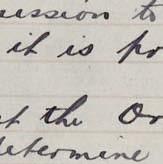 ession to
it is pr
t the Or
determine